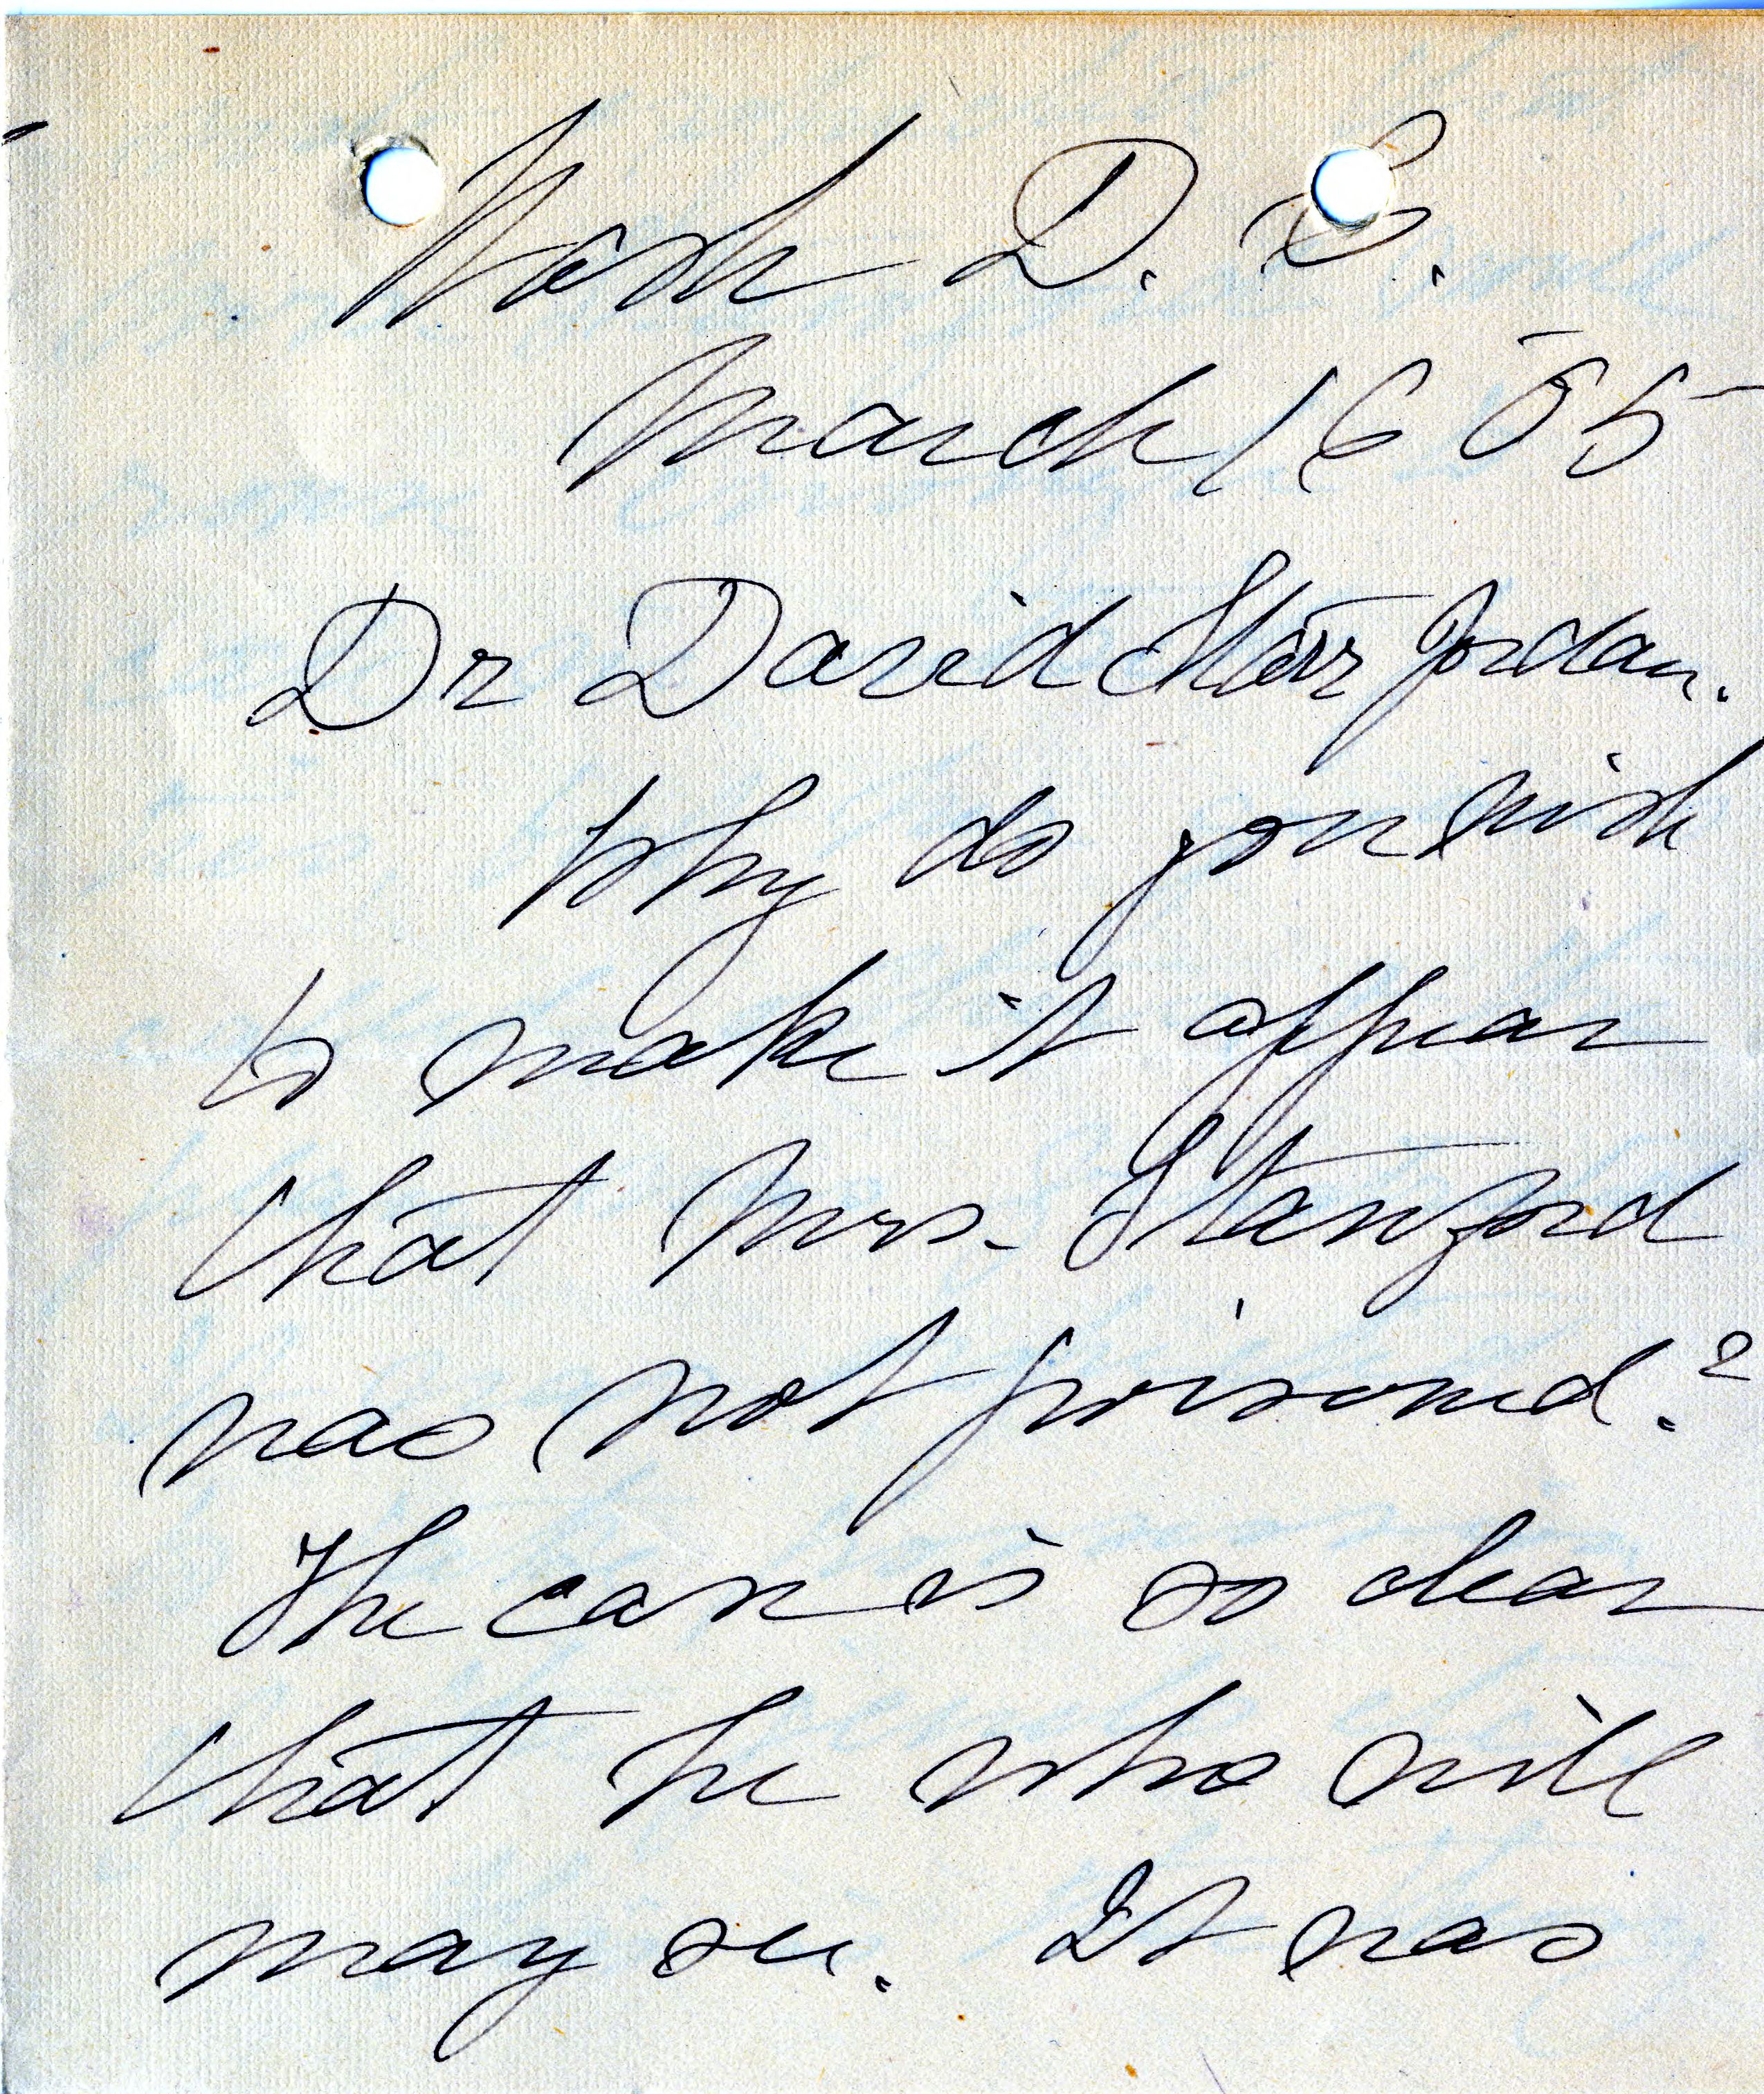 Wash D. C.
March 16 05
Dr David Starr Jordan.
Why do you wish
to make it appear
that Mrs. Stanford
was not poisoned?
The case is so clear
that he who will
may see. It was